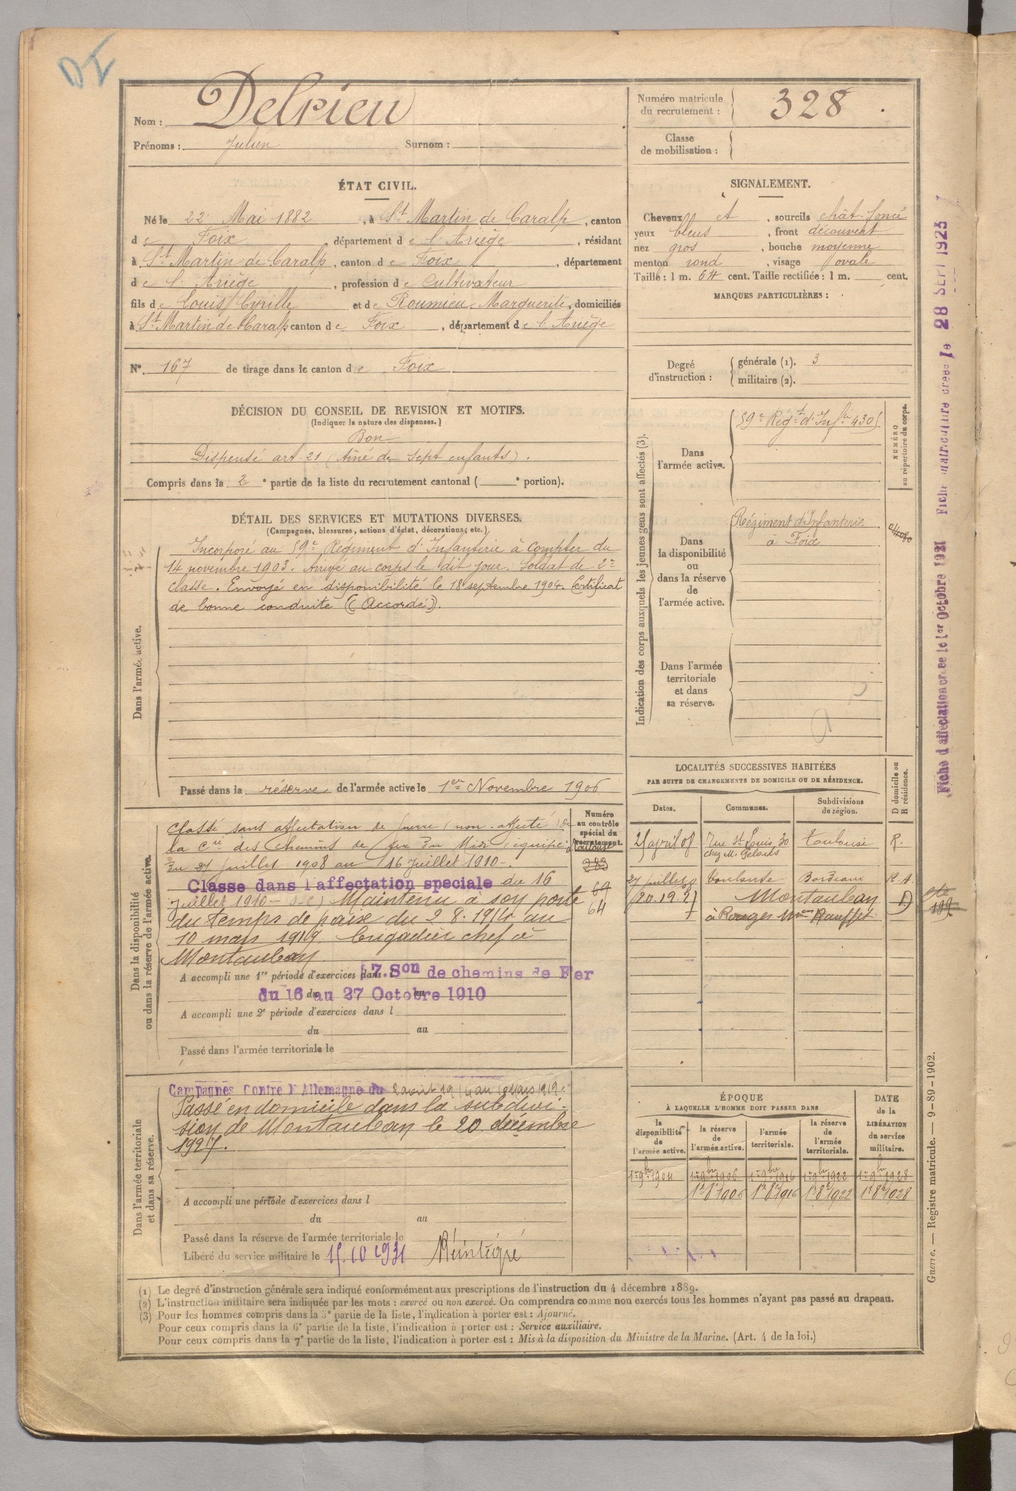 DI
Nom : Delrieu
Prénoms : Julien Surnom :
Numéro matricule du recrutement : 328
Classe de mobilisation :
ÉTAT CIVIL.
Né le 22 Mai 1882, à St Martin de Caralp, canton
de Foix, département de l'Ariège, résidant
à St Martin de Caralp, canton de Foix, département
de l'Ariège, profession de Cultivateur
fils de Louis Cyrille et de Roumieu Marguerite, domiciliés
à St Martin de Caralp canton de Foix, département de l'Ariège
N° 167 de tirage dans le canton de Foix
SIGNALEMENT.
Cheveux et, sourcils chât. foncé
yeux bleus, front découvert
nez gros, bouche moyenne
menton rond, visage ovale
Taille : 1 m. 64 cent. Taille rectifiée : 1 m. cent.
MARQUES PARTICULIÈRES :
Degré d'instruction : générale (1). 3
militaire (2).
DÉCISION DU CONSEIL DE REVISION ET MOTIFS.
(Indiquer la nature des dispenses.)
Bon
Dispensé art. 21 (Aîné de sept enfants).
Compris dans la 2e partie de la liste du recrutement cantonal ( e portion).
DÉTAIL DES SERVICES ET MUTATIONS DIVERSES.
(Campagnes, blessures, actions d'éclat, décorations, etc.)
Dans l'armée active.
Incorporé au 59e Régiment d'Infanterie à compter du
14 novembre 1903. Arrivé au corps le dit jour. Soldat de 2e
classe. Envoyé en disponibilité le 18 septembre 1904. Certificat
de bonne conduite (Accordé).
Passé dans la réserve de l'armée active le 1er Novembre 1906
Indication des corps auxquels les jeunes gens sont affectés (3).
NUMÉRO au répertoire du corps.
Dans l'armée active.
59e Régt d'Infie
Dans la disponibilité ou dans la réserve de l'armée active.
Régiment d'Infanterie
à Foix
Dans l'armée territoriale et dans sa réserve.
Fiche d'affectation créée le 1er Octobre 1921 Fiche matriculaire créée le 28 SEPT 1923
LOCALITÉS SUCCESSIVES HABITÉES
PAR SUITE DE CHANGEMENTS DE DOMICILE OU DE RÉSIDENCE.
Dates. Communes. Subdivisions de région. D domicile ou R résidence.
25 avril 08 rue St Louis 30 Toulouse R.
chez M.
27 juillet Toulouse Bordeaux R.
20.12.25 Montauban D
Dans la disponibilité ou dans la réserve de l'armée active.
Numéro au contrôle spécial du recrutement.
Classé sans affectation
la Cie des chemins de fer du Midi
du 27 juillet 1908 au 16 juillet 1910.
Classe dans l'affectation speciale du 16
juillet 1910 Maintenu à son poste
du temps de paix du 2.8.1914 au
10 mars 1919. brigadier chef à
Montauban
64
64
A accompli une 1re période d'exercices dans 17e Son de chemins de Fer
du 16 au 27 Octobre 1910
A accompli une 2e période d'exercices dans l
du au
Passé dans l'armée territoriale le
Dans l'armée territoriale et dans sa réserve.
Campagnes Contre l'Allemagne du 2 août 1914 au 10 Mars 1919.
Passé en domicile dans la subdivi-
sion de Montauban le 20 décembre
1925.
A accompli une période d'exercices dans l
du au
Passé dans la réserve de l'armée territoriale le
Libéré du service militaire le 15.10 1931 Réintégré
ÉPOQUE
À LAQUELLE L'HOMME DOIT PASSER DANS
la disponibilité de l'armée active. la réserve de l'armée active. l'armée territoriale. la réserve de l'armée territoriale. DATE de la LIBÉRATION du service militaire.
1er 9bre 1904 1er 9bre 1906 1er 9bre 1916 1er 9bre 1922 1er 9bre 1928
1er 8bre 1906 1er 8bre 1916 1er 8bre 1922 1er 8bre 1928
Guerre. — Registre matricule. — 9-89-1902.
(1) Le degré d'instruction générale sera indiqué conformément aux prescriptions de l'instruction du 4 décembre 1889.
(2) L'instruction militaire sera indiquée par les mots : exercé ou non exercé. On comprendra comme non exercés tous les hommes n'ayant pas passé au drapeau.
(3) Pour les hommes compris dans la 5e partie de la liste, l'indication à porter est : Ajourné.
Pour ceux compris dans la 6e partie de la liste, l'indication à porter est : Service auxiliaire.
Pour ceux compris dans la 7e partie de la liste, l'indication à porter est : Mis à la disposition du Ministre de la Marine. (Art. 4 de la loi.)